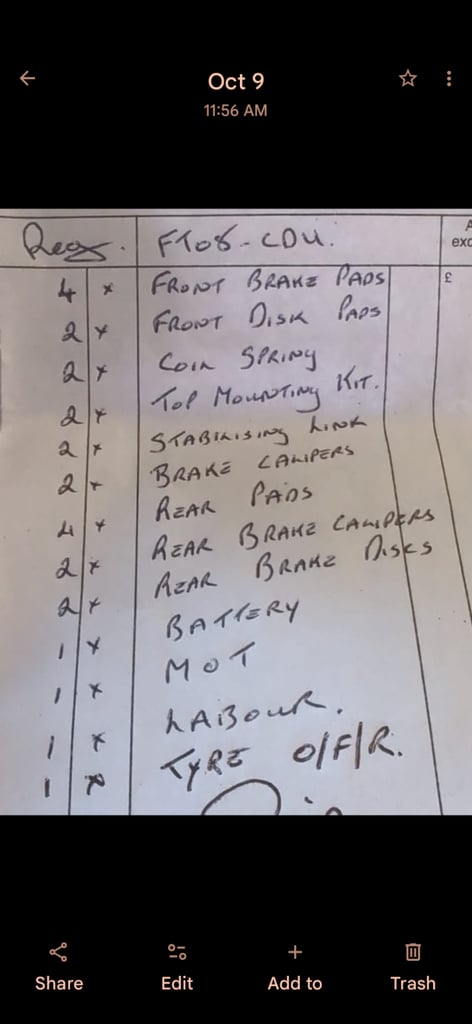 Oct 9
11:56 AM
Reg. FT08-CDU.
exc
£
4 x FRONT BRAKE PADS
2 x FRONT DISK PADS
2 x COIN SPRING
2 x TOP MOUNTING KIT.
2 x STABILISING LINK
2 x BRAKE CALIPERS
4 x REAR PADS
2 x REAR BRAKE CALIPERS
2 x REAR BRAKE DISCS
1 x BATTERY
1 x MOT
1 x LABOUR.
1 x TYRE O/F/R.
Share
Edit
Add to
Trash